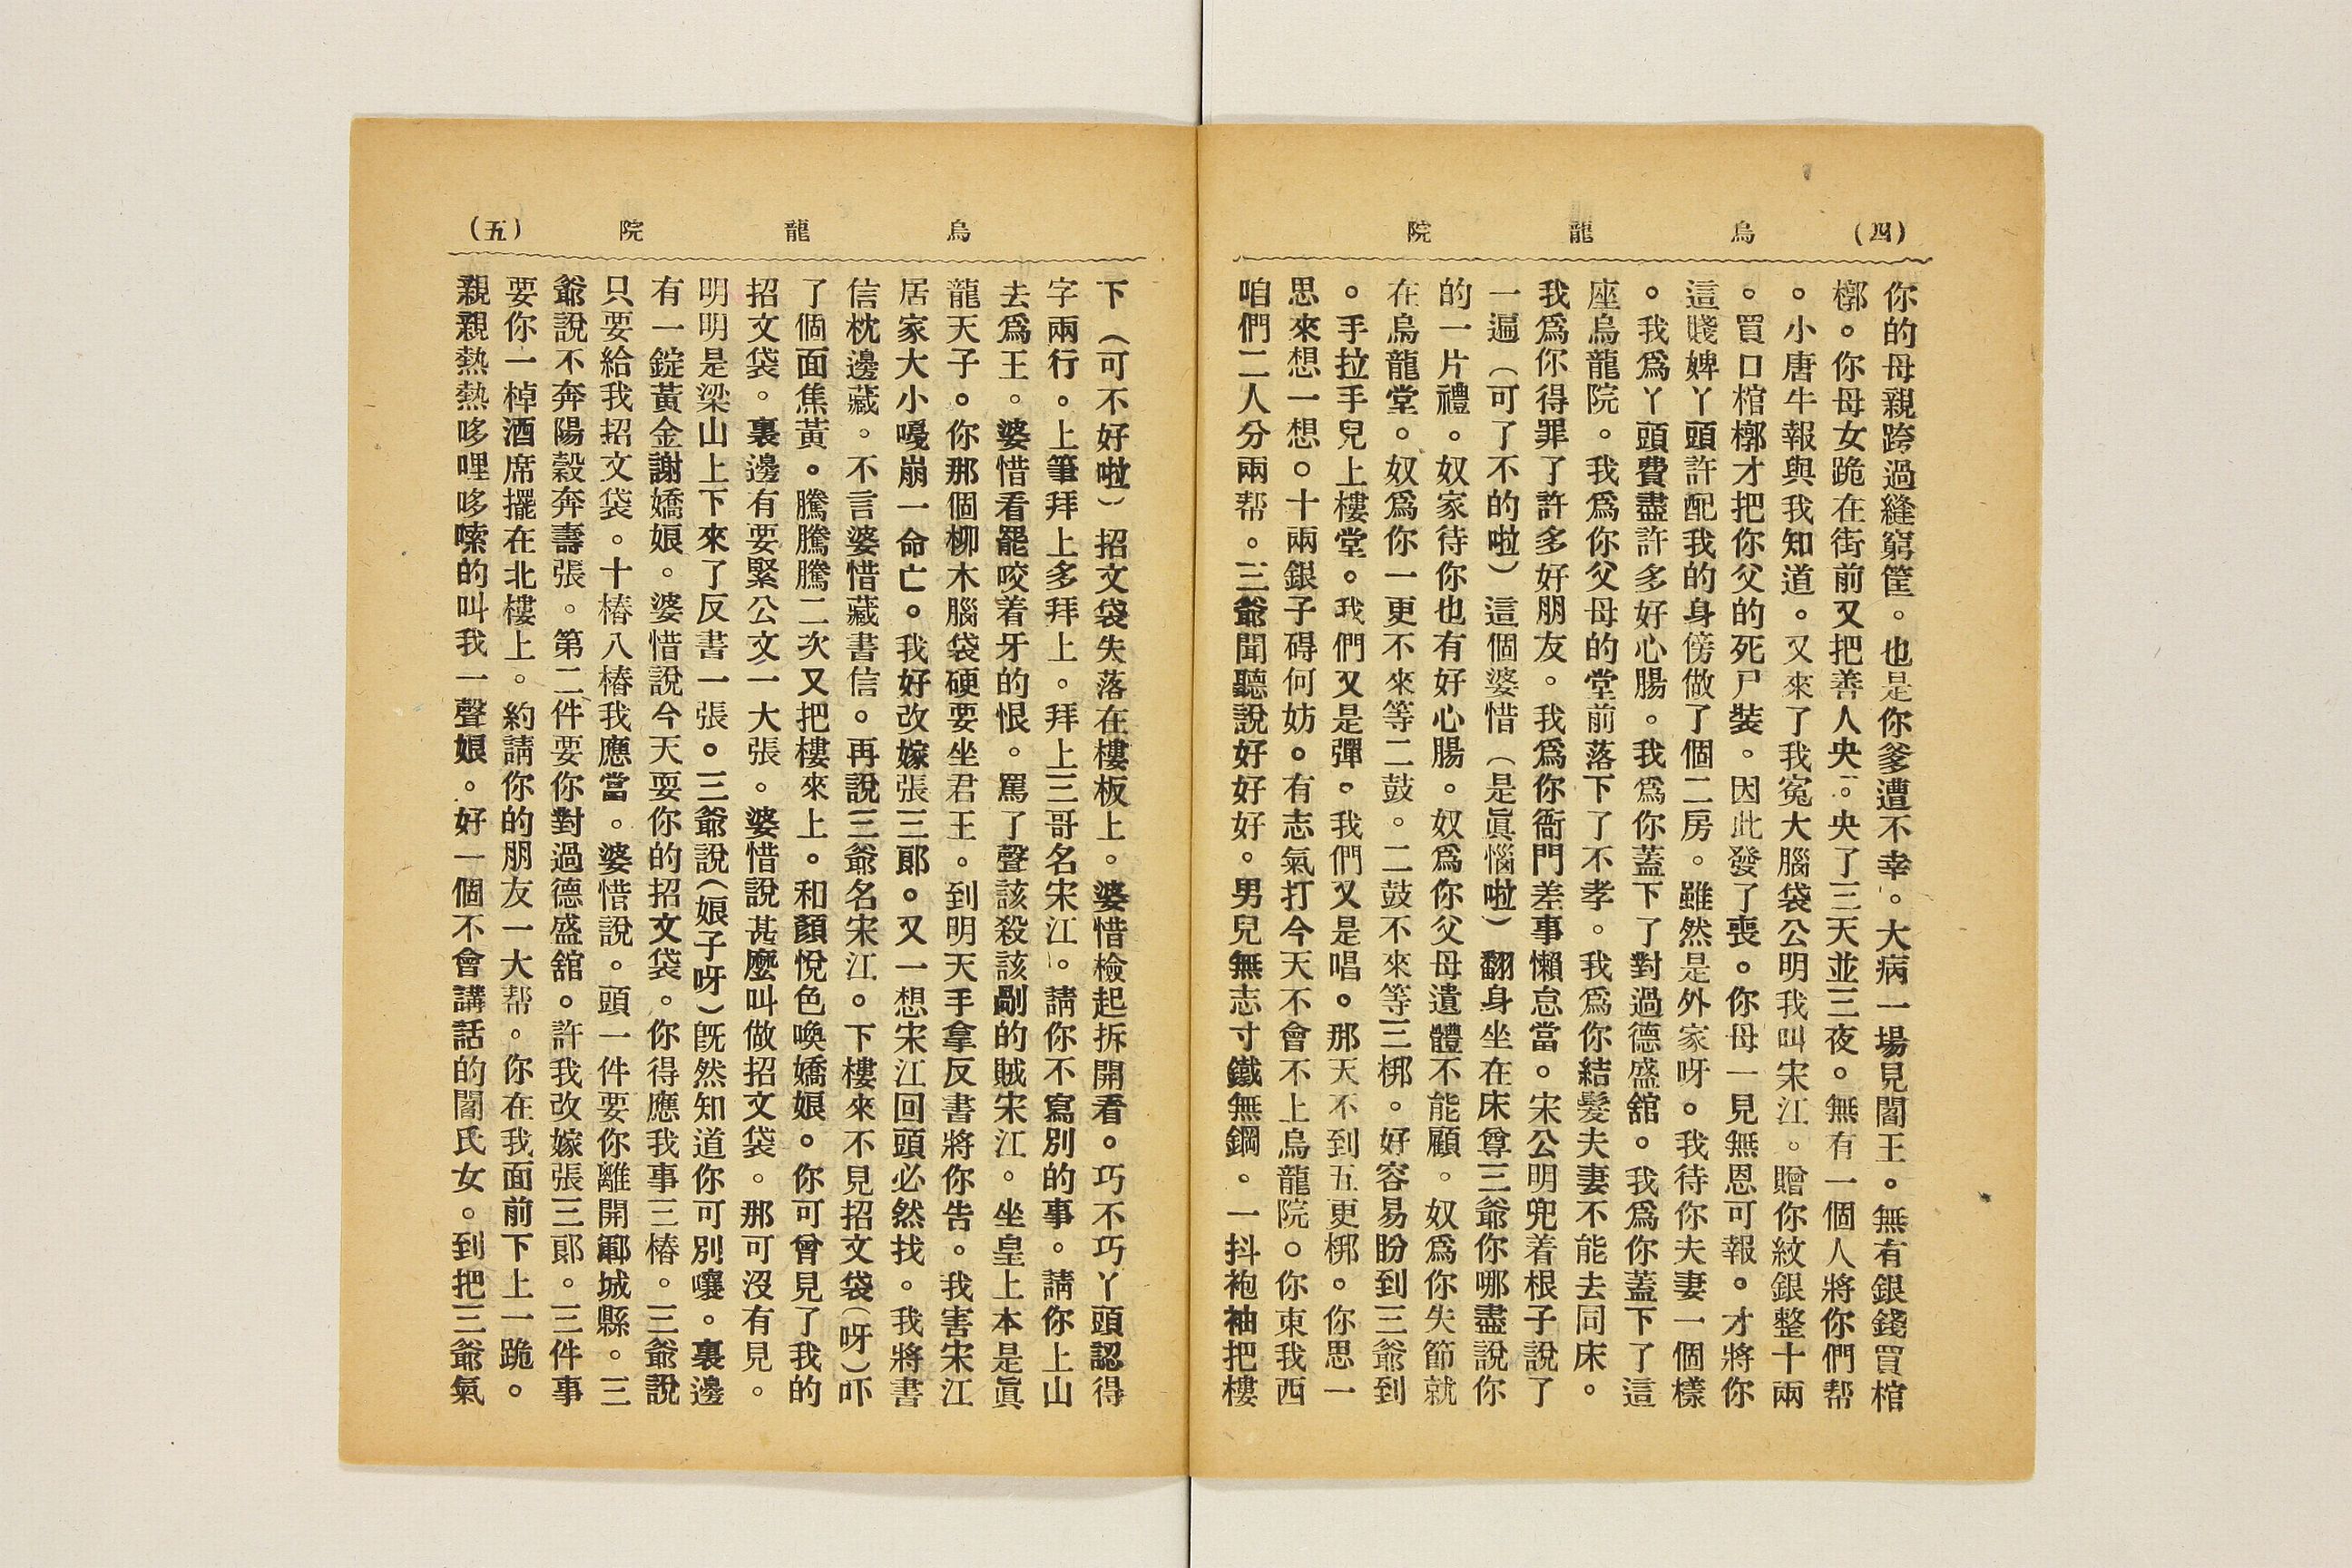 (四) 烏龍院
你的母親跨過縫窮筐。也是你爹遭不幸。大病一場見閻王。無有銀錢買棺
槨。你母女跪在街前又把善人央。央了三天並三夜。無有一個人將你們帮
。小唐牛報與我知道。又來了我寃大腦袋公明我叫宋江。贈你紋銀整十兩
。買口棺槨才把你父的死尸裝。因此發了喪。你母一見無恩可報。才將你
這賤婢丫頭許配我的身傍做了個二房。雖然是外家呀。我待你夫妻一個樣
。我爲丫頭費盡許多好心腸。我爲你蓋下了對過德盛舘。我爲你蓋下了這
座烏龍院。我爲你父母的堂前落下了不孝。我爲你結髮夫妻不能去同床。
我爲你得罪了許多好朋友。我爲你衙門差事懶怠當。宋公明兜着根子說了
一遍（可了不的啦）這個婆惜（是眞惱啦）翻身坐在床尊三爺你哪盡說你
的一片禮。奴家待你也有好心腸。奴爲你父母遺體不能顧。奴爲你失節就
在烏龍堂。奴爲你一更不來等二鼓。二鼓不來等三梆。好容易盼到三爺到
。手拉手兒上樓堂。我們又是彈。我們又是唱。那天不到五更梆。你思一
思來想一想。十兩銀子碍何妨。有志氣打今天不會不上烏龍院。你東我西
咱們二人分兩帮。三爺聞聽說好好好。男兒無志寸鐵無鋼。一抖袍袖把樓
烏龍院 (五)
下（可不好啦）招文袋失落在樓板上。婆惜檢起拆開看。巧不巧丫頭認得
字兩行。上筆拜上多拜上。拜上三哥名宋江。請你不寫別的事。請你上山
去爲王。婆惜看罷咬着牙的恨。罵了聲該殺該剮的賊宋江。坐皇上本是眞
龍天子。你那個柳木腦袋硬要坐君王。到明天手拿反書將你告。我害宋江
居家大小嘎崩一命亡。我好改嫁張三郎。又一想宋江回頭必然找。我將書
信枕邊藏。不言婆惜藏書信。再說三爺名宋江。下樓來不見招文袋（呀）吓
了個面焦黃。騰騰騰二次又把樓來上。和顏悅色喚嬌娘。你可曾見了我的
招文袋。裏邊有要緊公文一大張。婆惜說甚麼叫做招文袋。那可沒有見。
明明是梁山上下來了反書一張。三爺說（娘子呀）旣然知道你可別嚷。裏邊
有一錠黃金謝嬌娘。婆惜說今天耍你的招文袋。你得應我事三樁。三爺說
只要給我招文袋。十樁八樁我應當。婆惜說。頭一件要你離開鄆城縣。三
爺說不奔陽穀奔壽張。第二件要你對過德盛舘。許我改嫁張三郎。三件事
要你一棹酒席擺在北樓上。約請你的朋友一大帮。你在我面前下上一跪。
親親熱熱哆哩哆嗦的叫我一聲娘。好一個不會講話的閻氏女。到把三爺氣